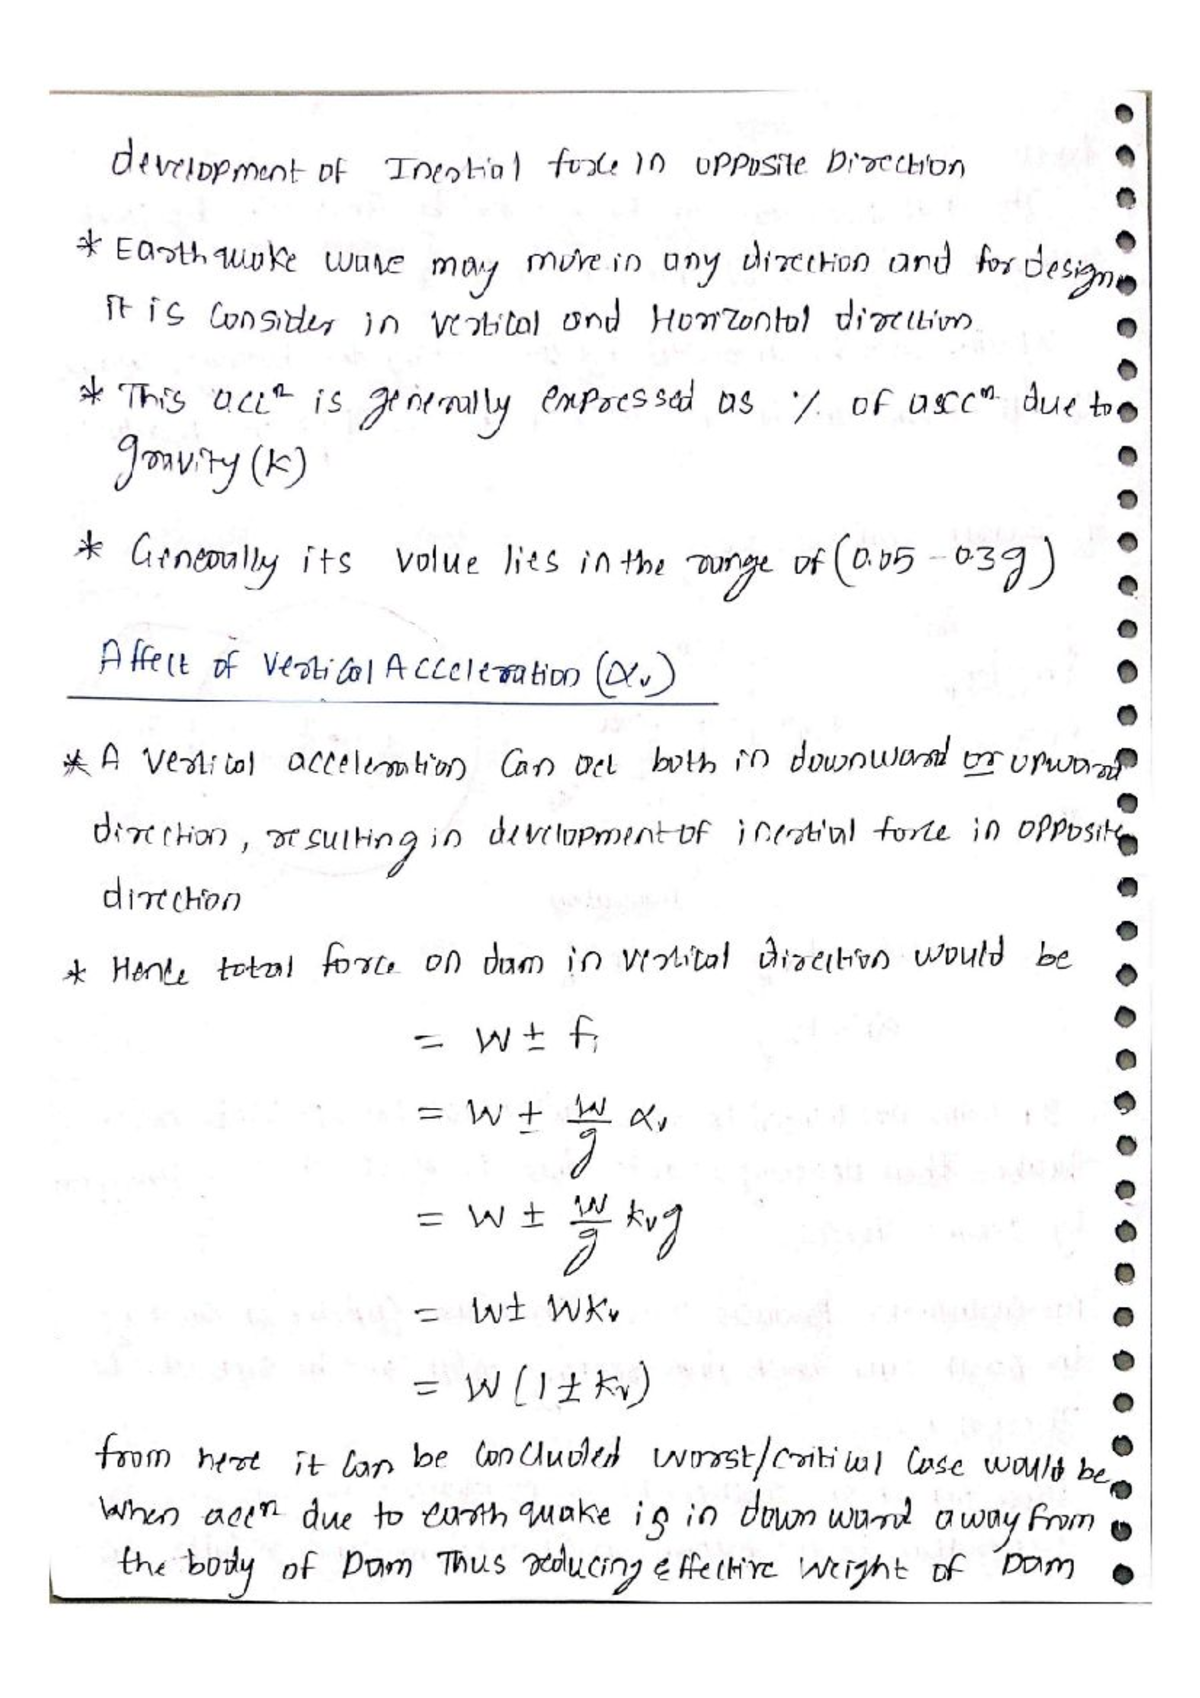 development of Inertial force in opposite Direction
* Earthquake wave may move in any direction and for design
it is Consider in vertical and Horizontal direction
* This accⁿ is generally expressed as % of accⁿ due to
gravity (k)
* Generally its value lies in the range of (0.05 - 0.3g)
Affect of Vertical Acceleration (αv)
* A Vertical acceleration Can act both in downward or upward
direction, resulting in development of inertial force in opposite
direction
* Hence total force on dam in vertical direction would be
= W ± fi
= W ± W/g αv
= W ± W/g kvg
= W ± Wkv
= W (1 ± kv)
from here it Can be Concluded worst/critical Case would be
When accⁿ due to earth quake is in down ward away from
the body of Dam Thus reducing effective Weight of Dam